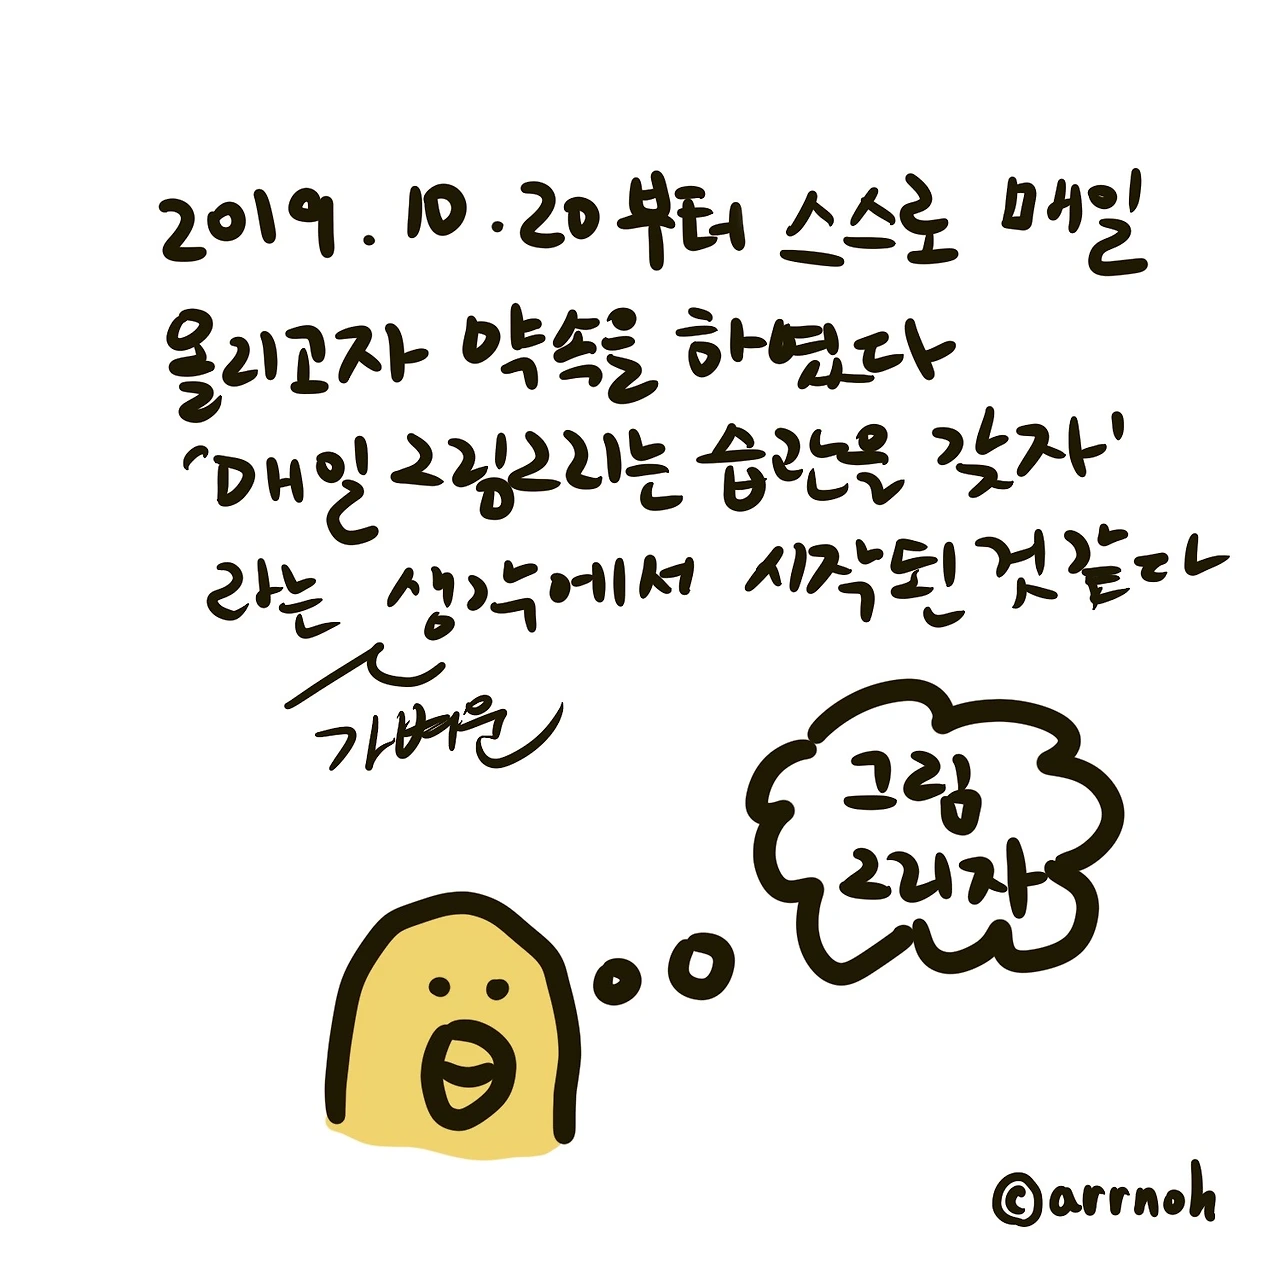 2019.10.20부터 스스로 매일
올리고자 약속을 하였다
'매일 그림그리는 습관을 갖자'
라는 생각에서 시작된 것 같다
가벼운
그림
그리자
©arrnoh